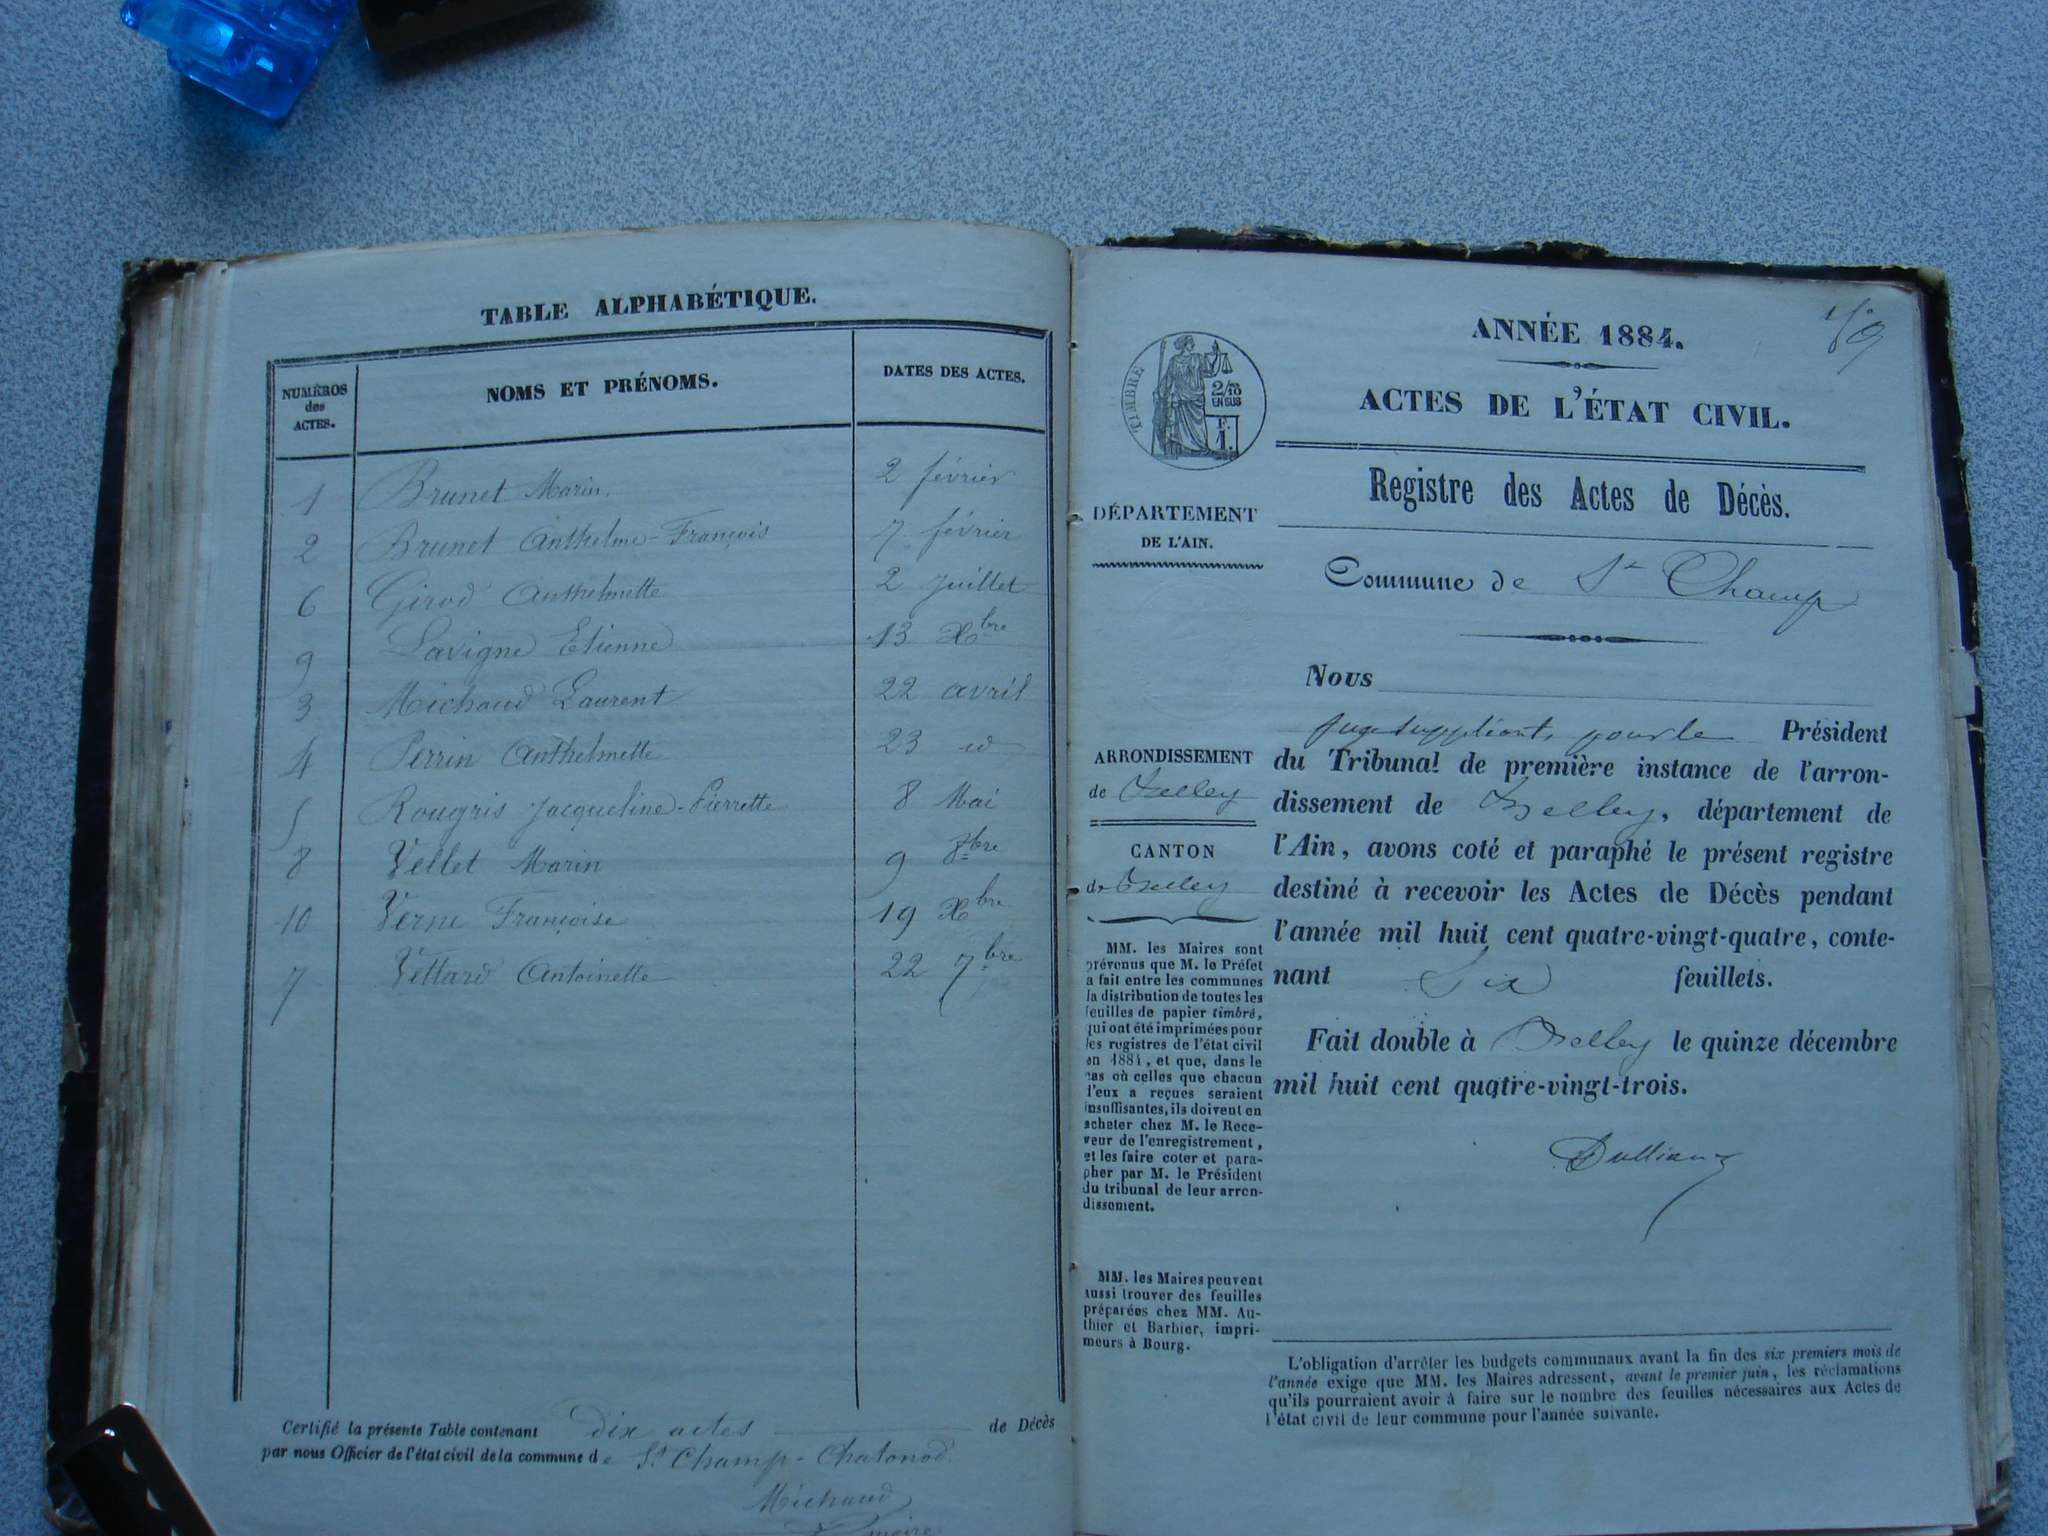 TABLE ALPHABÉTIQUE.
NUMÉROS des ACTES. NOMS ET PRÉNOMS. DATES DES ACTES.
1 Brunet Marin. 2 février
2 Brunet Anthelme-François 7 février
6 Girod Anthelmette 2 Juillet
9 Lavigne Etienne 13 Xbre
3 Michaud Laurent 22 avril
4 Perrin Anthelmette 23 id
5 Rougris Jacqueline-Pierrette 8 Mai
8 Vellet Marin 9 8bre
10 Verne Françoise 19 Xbre
7 Vettard Antoinette 22 7bre
Certifié la présente Table contenant dix actes de Décès
par nous Officier de l'état civil de la commune de St Champ-Chatonod
Michaud
maire
ANNÉE 1884.
ACTES DE L'ÉTAT CIVIL.
TIMBRE
2/10
EN SUS
F.
1.
Registre des Actes de Décès.
DÉPARTEMENT
DE L'AIN.
Commune de St Champ
Nous
Juge suppléant, pour le Président
du Tribunal de première instance de l'arron-
dissement de Belley, département de
l'Ain, avons coté et paraphé le présent registre
destiné à recevoir les Actes de Décès pendant
l'année mil huit cent quatre-vingt-quatre, conte-
nant Six feuillets.
Fait double à Belley le quinze décembre
mil huit cent quatre-vingt-trois.
ARRONDISSEMENT
de Belley
CANTON
de Belley
MM. les Maires sont
prévenus que M. le Préfet
a fait entre les communes
la distribution de toutes les
feuilles de papier timbré,
qui ont été imprimées pour
les registres de l'état civil
en 1884, et que, dans le
cas où celles que chacun
d'eux a reçues seraient
insuffisantes, ils doivent en
acheter chez M. le Rece-
veur de l'enregistrement,
et les faire coter et para-
pher par M. le Président
du tribunal de leur arron-
dissement.
MM. les Maires peuvent
aussi trouver des feuilles
préparées chez MM. Au-
thier et Barbier, impri-
meurs à Bourg.
L'obligation d'arrêter les budgets communaux avant la fin des six premiers mois de
l'année exige que MM. les Maires adressent, avant le premier juin, les réclamations
qu'ils pourraient avoir à faire sur le nombre des feuilles nécessaires aux Actes de
l'état civil de leur commune pour l'année suivante.